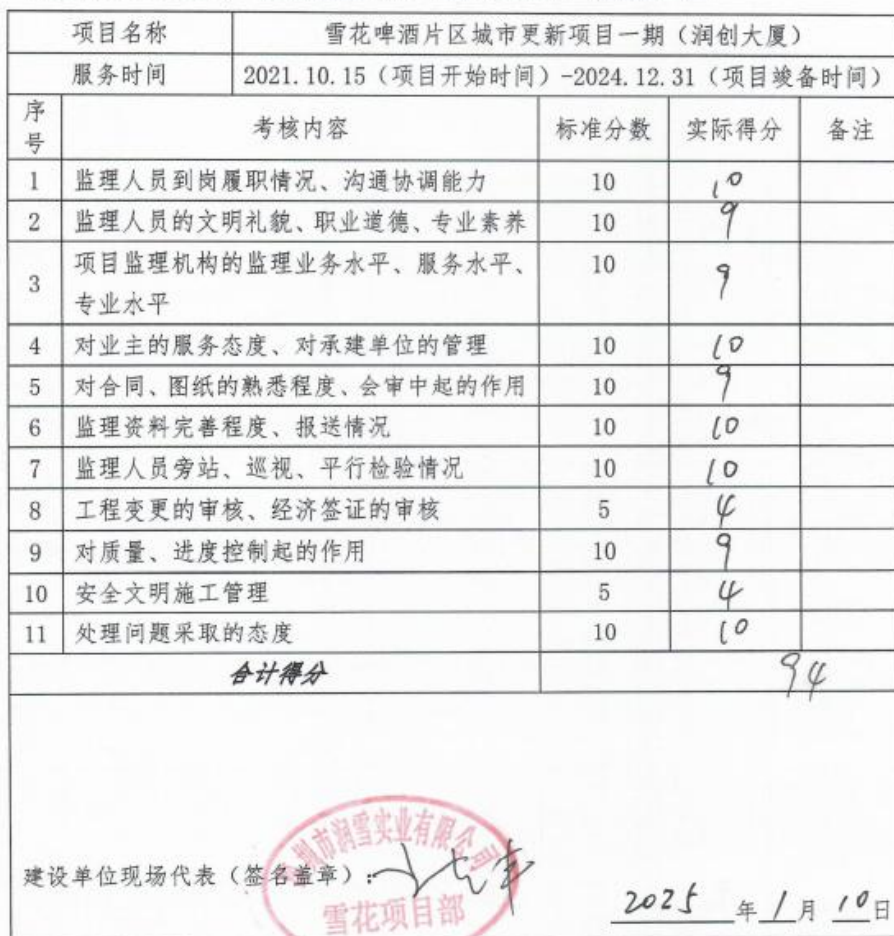 项目名称 雪花啤酒片区城市更新项目一期（润创大厦）
服务时间 2021.10.15（项目开始时间）-2024.12.31（项目竣备时间）
序号 考核内容 标准分数 实际得分 备注
1 监理人员到岗履职情况、沟通协调能力 10 10
2 监理人员的文明礼貌、职业道德、专业素养 10 9
3 项目监理机构的监理业务水平、服务水平、 10 9
专业水平
4 对业主的服务态度、对承建单位的管理 10 10
5 对合同、图纸的熟悉程度、会审中起的作用 10 9
6 监理资料完善程度、报送情况 10 10
7 监理人员旁站、巡视、平行检验情况 10 10
8 工程变更的审核、经济签证的审核 5 4
9 对质量、进度控制起的作用 10 9
10 安全文明施工管理 5 4
11 处理问题采取的态度 10 10
合计得分 94
圳市润雪实业有限公司
建设单位现场代表（签名盖章）：
雪花项目部
2025年1月10日